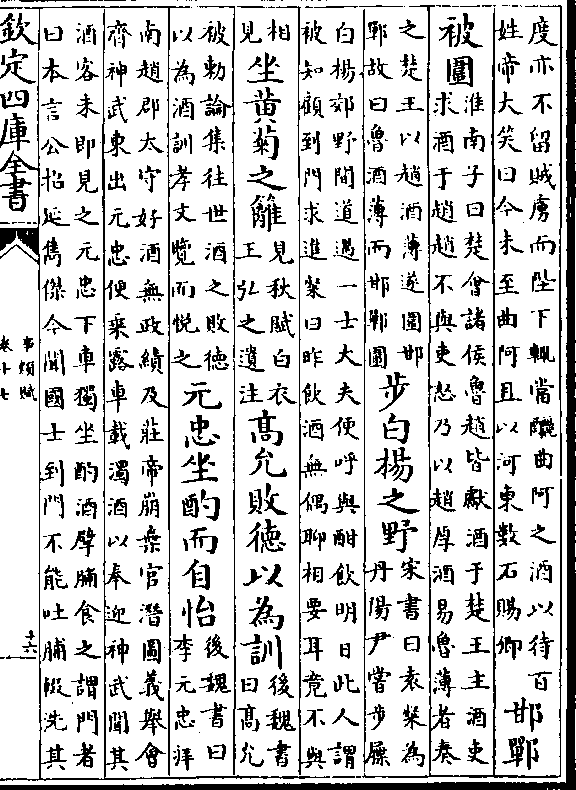 度亦不留賊虜而陛下輒當釃曲阿之酒以待百
姓帝大笑曰今未至曲阿且以河東數石賜卿
邯鄲
被圍
淮南子曰楚會諸侯魯趙皆獻酒于楚王主酒吏
求酒于趙趙不與吏怒乃以趙厚酒易魯薄者奏
之楚王以趙酒薄遂圍邯
鄲故曰魯酒薄而邯鄲圍
步白楊之野
宋書曰袁粲為
丹陽尹嘗步屧
白楊郊野間道遇一士大夫便呼與酣飲明日此人謂
被知顧到門求進粲曰昨飲酒無偶聊相要耳竟不與
相
見
坐黄菊之籬
見秋賦白衣
王弘之遺注
髙允敗德以為訓
後魏書
曰髙允
被勅論集往世酒之敗德
以為酒訓孝文覽而悅之
元忠坐酌而自怡
後魏書曰
李元忠拜
南趙郡太守好酒無政績及莊帝崩棄官潛圖義舉會
齊神武東出元忠便乗露車載濁酒以奉迎神武聞其
酒客未即見之元忠下車獨坐酌酒擘脯食之謂門者
曰本言公招延雋傑今聞國士到門不能吐脯輟洗其
欽定四庫全書
事類賦
卷十七
十六